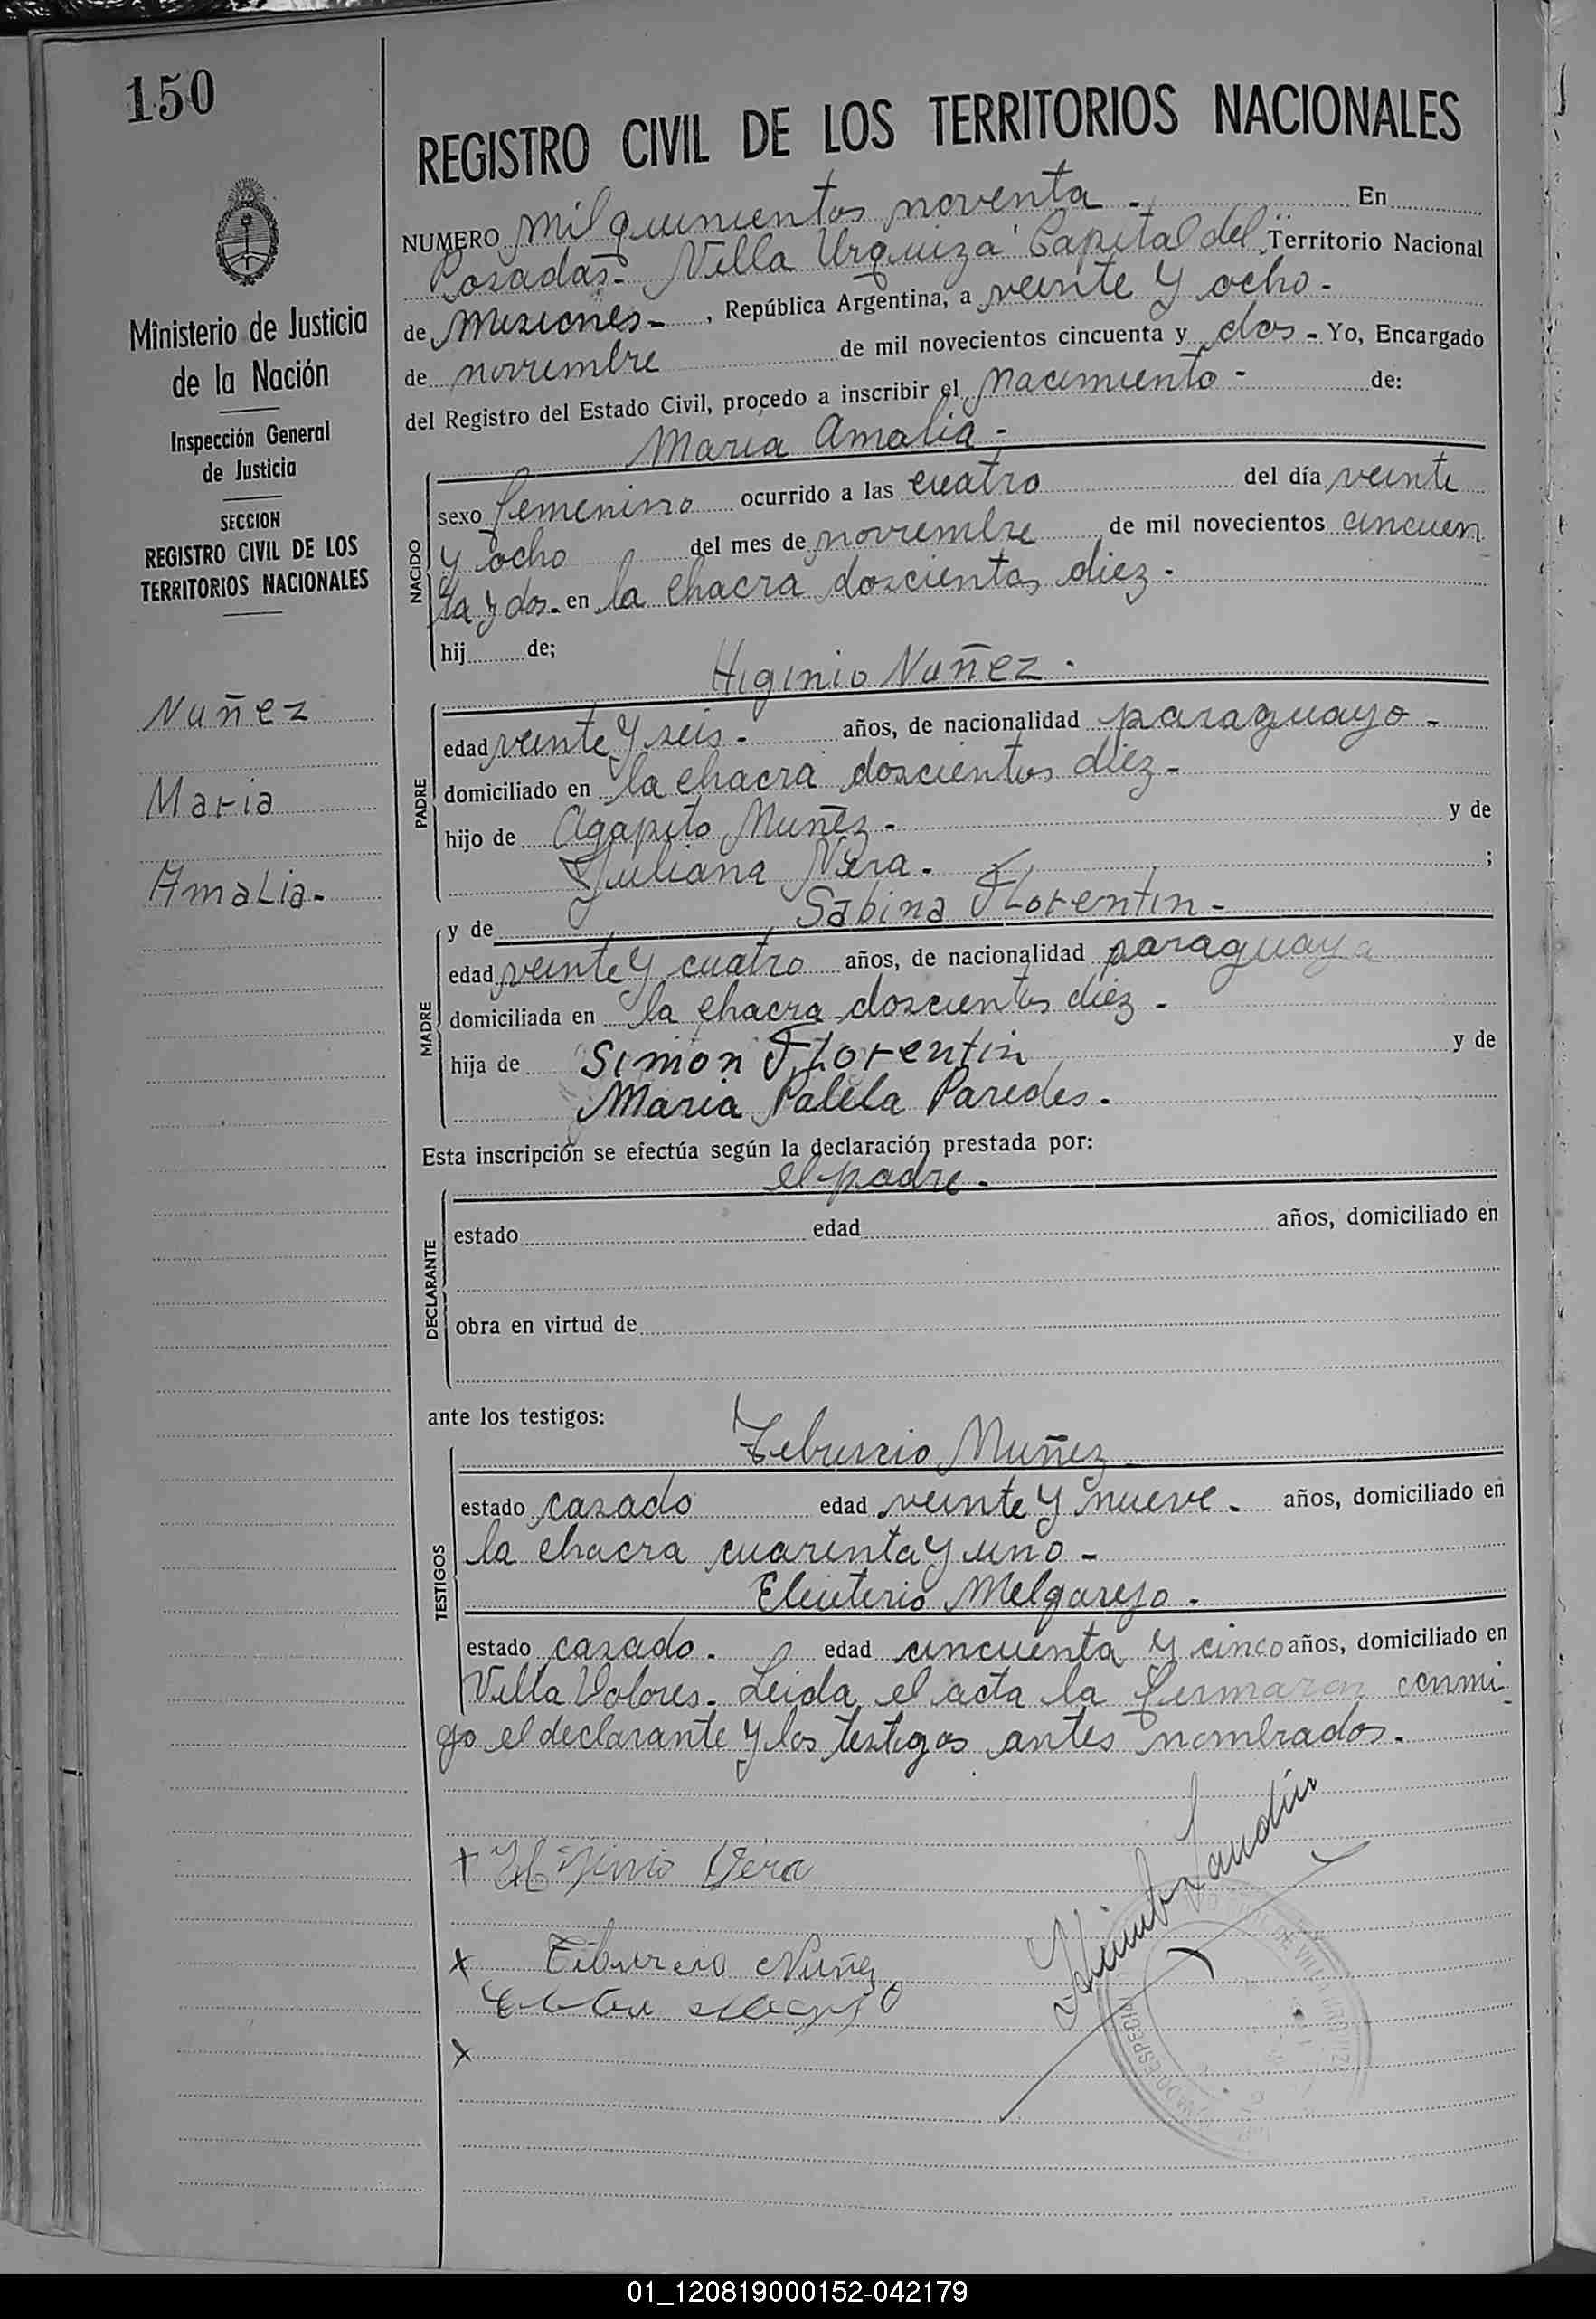 150
Ministerio de Justicia
de la Nación
Inspección General
de Justicia
SECCION
REGISTRO CIVIL DE LOS
TERRITORIOS NACIONALES
Nuñez
Maria
Amalia-
REGISTRO CIVIL DE LOS TERRITORIOS NACIONALES
NUMERO mil quinientos noventa - En
Posadas- Villa Urquiza Capital del Territorio Nacional
de Misiones-, República Argentina, a veinte y ocho-
de noviembre de mil novecientos cincuenta y dos- Yo, Encargado
del Registro del Estado Civil, procedo a inscribir el nacimiento- de:
Maria Amalia-
NACIDO
sexo femenino ocurrido a las cuatro del día veinte
y ocho del mes de noviembre de mil novecientos cincuen
ta y dos- en la chacra doscientos diez-
hij de;
Higinio Nuñez.
PADRE
edad veinte y seis- años, de nacionalidad paraguayo-
domiciliado en la chacra doscientos diez-
hijo de Agapito Nuñez- y de
Juliana Vera- ;
y de Sabina Florentin-
MADRE
edad veinte y cuatro años, de nacionalidad paraguaya
domiciliada en la chacra doscientos diez-
hija de Simón Florentin y de
Maria Paredes.
Esta inscripción se efectúa según la declaración prestada por:
el padre.
DECLARANTE
estado edad años, domiciliado en
obra en virtud de
ante los testigos:
Tiburcio Nuñez
TESTIGOS
estado casado edad veinte y nueve- años, domiciliado en
la chacra cuarenta y uno-
Eleuterio Melgarejo-
estado casado. edad cincuenta y cinco años, domiciliado en
Villa Dolores. Leida el acta la firmaron conmi
go el declarante y los testigos antes nombrados.
+ Vera
x Tiburcio Nuñez
x
DE VILLA URQUIZA
01_120819000152-042179